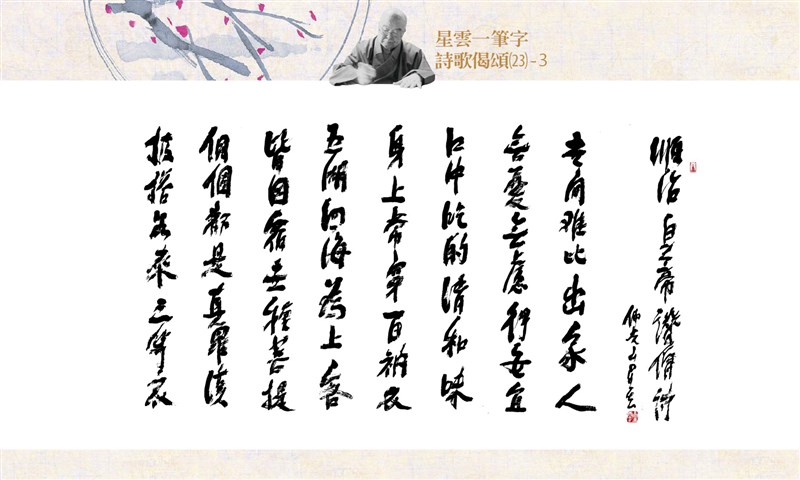 星雲一筆字
詩歌偈頌(23)-3
順治皇帝讚僧詩
佛光山星雲
世間难比出家人
無憂無慮得安宜
口中吃的清和味
身上常穿百衲衣
五湖四海為上客
皆因宿世種菩提
個個都是真羅漢
披搭如來三等衣